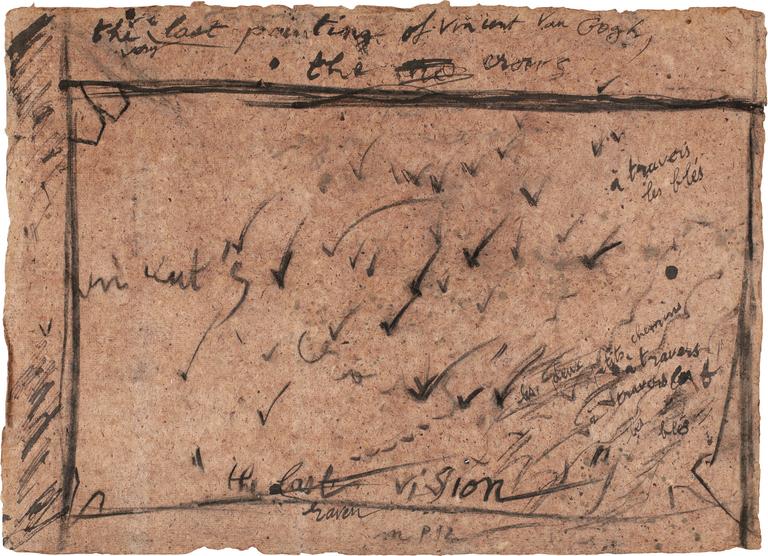 the last painting of Vincent Van Gogh,
very
the crows
à travers
les blés
vincent's
les deux petits chemins
à travers
à travers les b
les blés
"the last vision"
raven